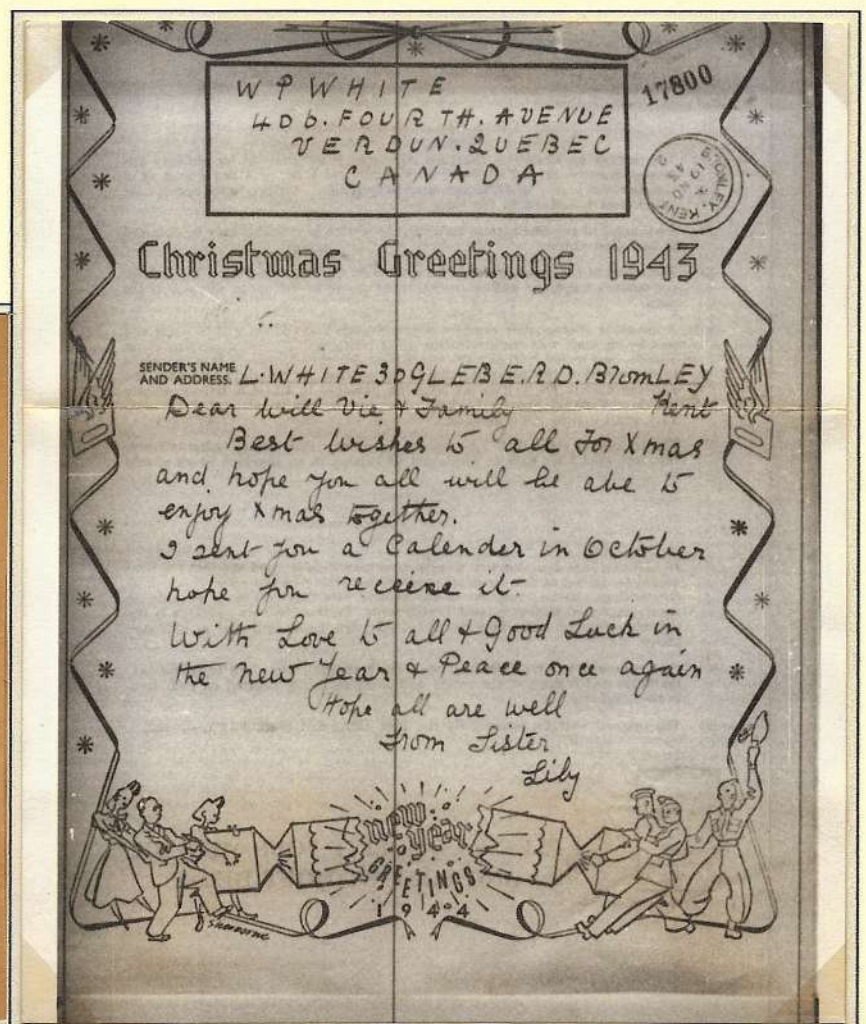 W P WHITE
406. FOURTH. AVENUE
VERDUN. QUEBEC
CANADA
17800
BROMLEY, KENT
Christmas Greetings 1943
SENDER'S NAME
AND ADDRESS.
L. WHITE 30 GLEBE. R D. BromLEY
Kent
Dear Will Vie & Family
Best wishes to all For Xmas
and hope you all will be abe to
enjoy Xmas together.
I sent you a Calender in October
hope you receive it.
With Love to all & Good Luck in
the new Year & Peace once again
Hope all are well
From Sister
Lily
new
year
GREETINGS
1944